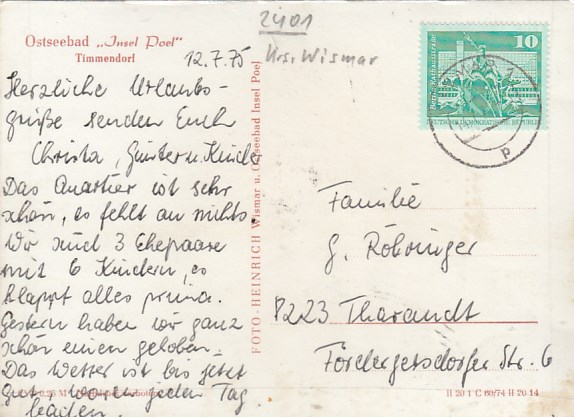 Ostseebad „Insel Poel"
Timmendorf
2401
Krs. Wismar
12.7.75
Herzliche Urlaubs-
grüße senden Euch
Christa, Günter u. Kinder
Das Quartier ist sehr
schön, es fehlt an nichts.
Wir sind 3 Ehepaare
mit 6 Kindern, es
klappt alles prima.
Gestern haben wir ganz
schön einen gehoben.
Das Wetter ist bis jetzt
gut, waren jeden Tag
baden.
FOTO-HEINRICH Wismar u. Ostseebad Insel Poel
10
DEUTSCHE DEMOKRATISCHE REPUBLIK
p
Familie
G. Röhringer
8223 Tharandt
Fördergersdorfer Str. 6
II 20 1 C 60/74 H 20 14